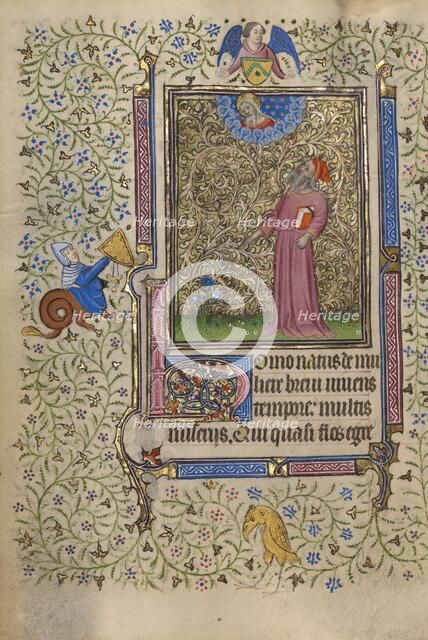 Heritage Heritage
Heritage Heritage
Homo natus de mu
liere breui uiuens
tempore multis
miseriis. Qui quasi flos egre